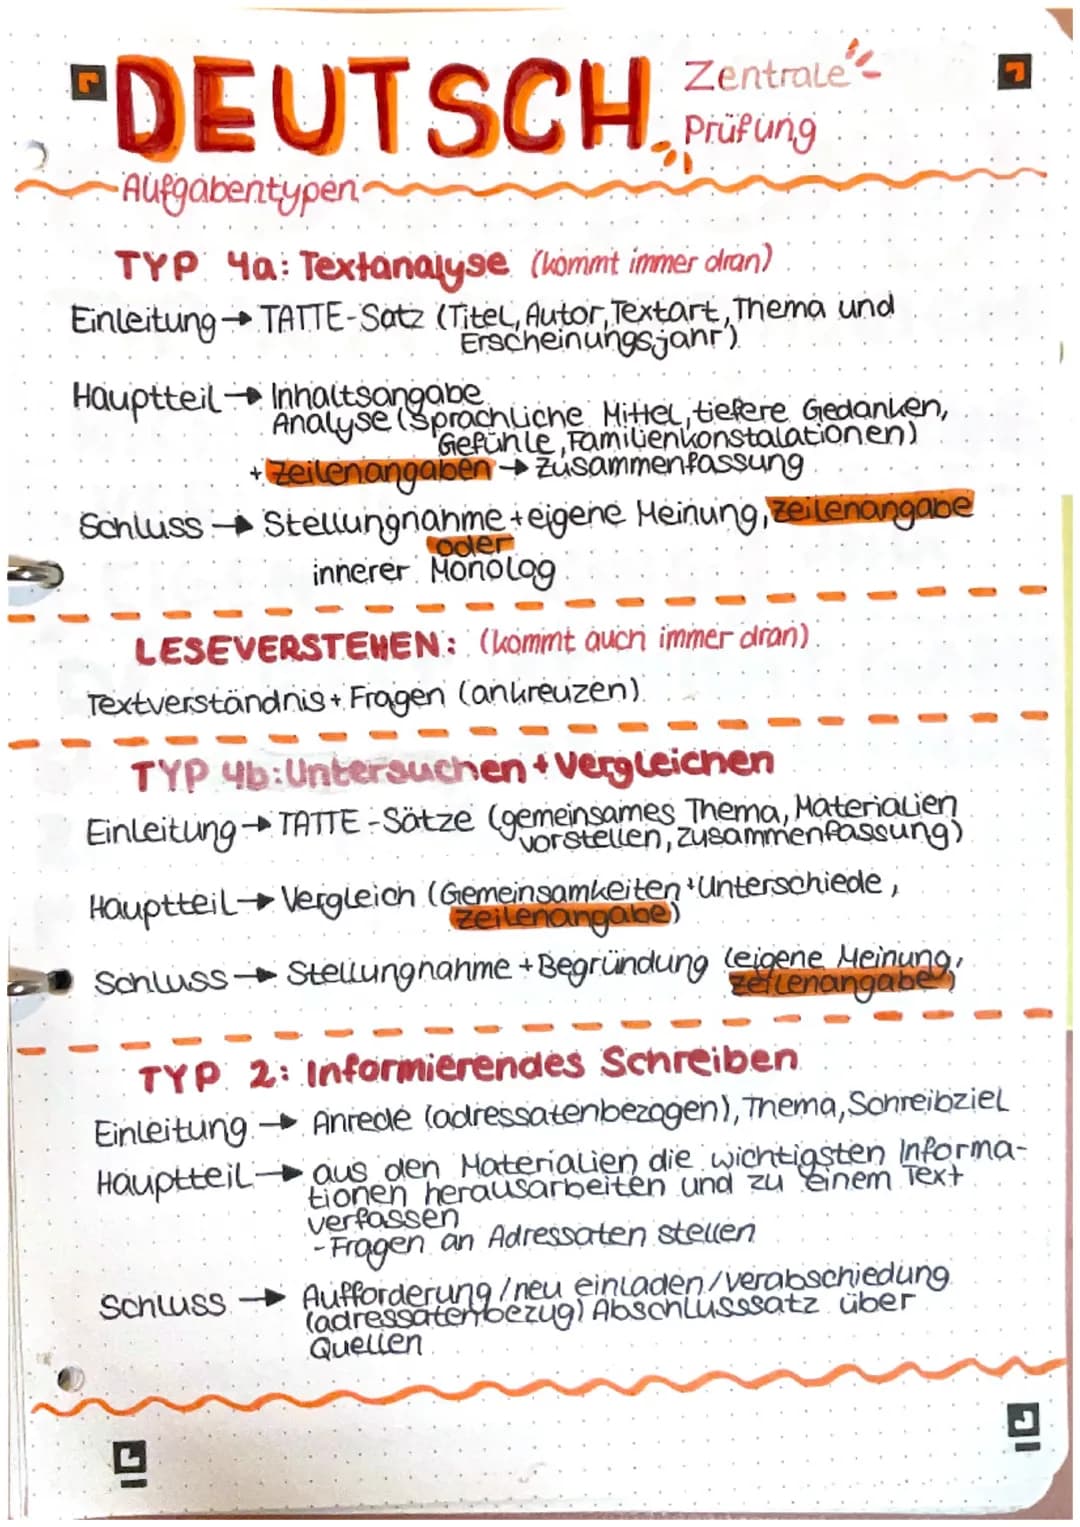 DEUTSCH Zentrale
Prüfung
Aufgabentypen
TYP 4a: Textanalyse (kommt immer dran)
Einleitung → TATTE-Satz (Titel, Autor, Textart, Thema und
Erscheinungsjahr)
Hauptteil → Inhaltsangabe
Analyse (sprachliche Mittel, tiefere Gedanken,
Gefühle, Familienkonstalationen)
+ Zeilenangaben → Zusammenfassung
Schluss → Stellungnahme + eigene Meinung, Zeilenangabe
oder
innerer Monolog
LESEVERSTEHEN: (kommt auch immer dran)
Textverständnis + Fragen (ankreuzen)
TYP 4b: Untersuchen + Vergleichen
Einleitung → TATTE-Sätze (gemeinsames Thema, Materialien
vorstellen, Zusammenfassung)
Hauptteil → Vergleich (Gemeinsamkeiten + Unterschiede,
Zeilenangabe)
Schluss → Stellungnahme + Begründung (eigene Meinung,
Zeilenangabe)
TYP 2: Informierendes Schreiben
Einleitung → Anrede (adressatenbezogen), Thema, Schreibziel
Hauptteil → aus den Materialien die wichtigsten Informa-
tionen herausarbeiten und zu einem Text
verfassen
- Fragen an Adressaten stellen
Schluss → Aufforderung/neu einladen/verabschiedung
(adressatenbezug) Abschlusssatz über
Quellen